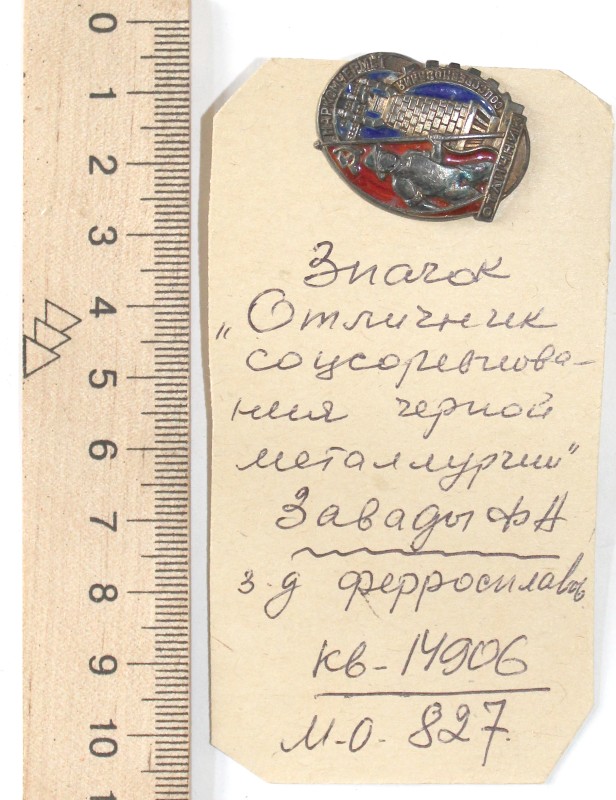 0
1
2
3
4
5
6
7
8
9
10
НАРКОМЧЕРМЕТ
СОЦСОРЕВНОВАНИЯ
ОТЛИЧНИК
Значок
„Отличник
соцсоревнова-
ния черной
металлургии"
Завады Ф А
з-д ферросплавов
КВ-14906
М.О. 827.